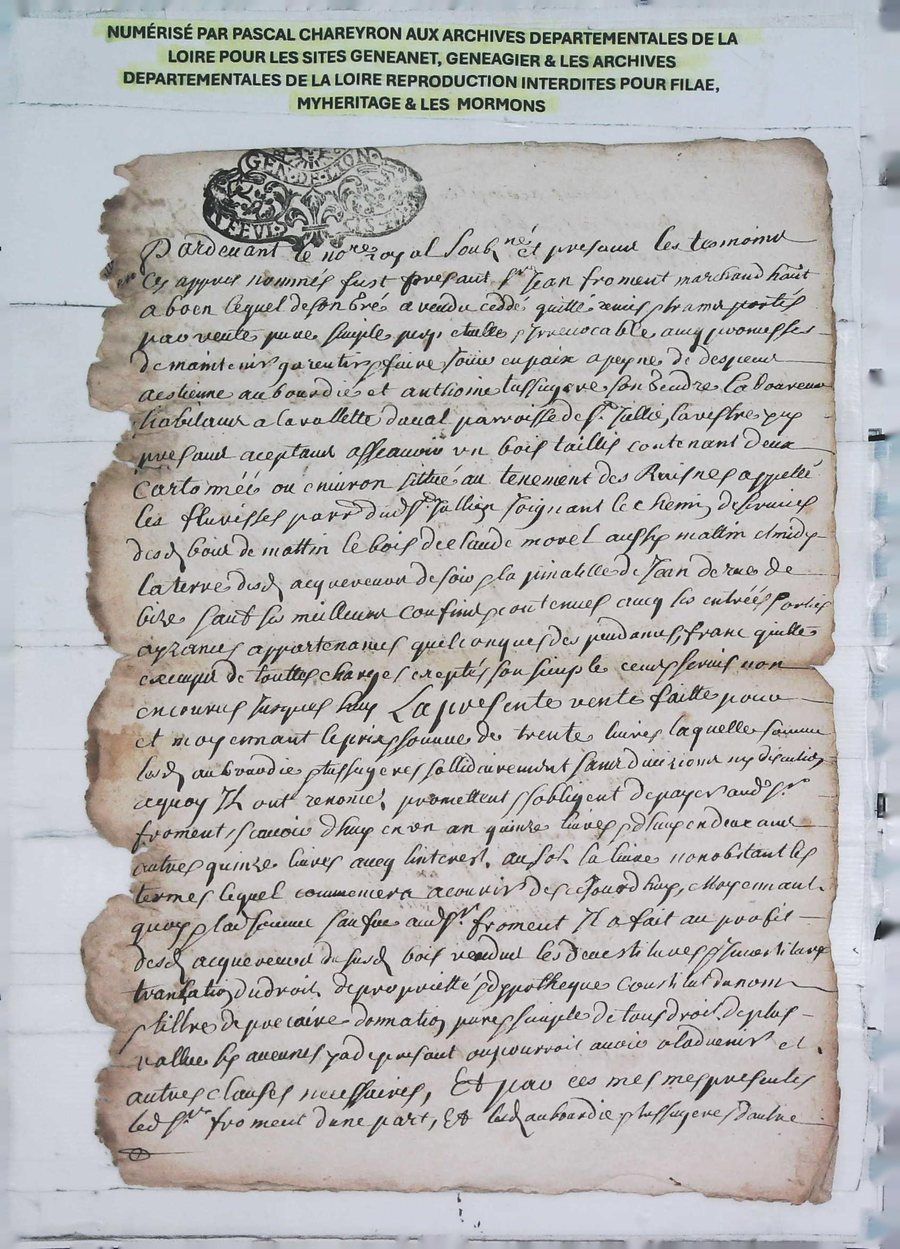 NUMÉRISÉ PAR PASCAL CHAREYRON AUX ARCHIVES DEPARTEMENTALES DE LA
LOIRE POUR LES SITES GENEANET, GENEAGIER & LES ARCHIVES
DEPARTEMENTALES DE LA LOIRE REPRODUCTION INTERDITES POUR FILAE,
MYHERITAGE & LES MORMONS
GEN·DE·LION
Pardevant le no.re royal soub.né et presant les tesmoins
cy appres nommés fust presant s.r Jean froment marchand haut
a boen lequel de son gré a vendu ceddé quitté remis & transportés
par vente pure simple perpetuelle & Irrevocable avecq promesses
de maintenir garentir & faire jouir en paix a peyne de despens
a estienne aubourdie et anthoine tussugere son gendre laboureurs
habitans a la vallette d'aval parroisse de s.t Jullien la vestre
presant aceptant assavoir un bois taillis contenant deux
cartonnée ou environ sittué au tenement des appellé
les parr.e dud. s.t Jullien joignant le chemin de
desd. bois de mattin le bois de claude morel aussy mattin & midy
la terre desd. acquereurs de soir & la pinatelle de Jean de
bize sauf ses meilleurs confins contenues avecq ses entrées sorties
ayzances appartenances quelconques despendances, franc quitte
exempt de touttes charges exeptés son simple cens servis non
encourus jusques huy La presente vente faitte pour
et moyennant le prix & somme de trente livres laquelle somme
lesd. aubourdie & tussugeres sollidairement sans division ny discution
a quoy Il ont renoncé, promettent & obligent de payer aud. s.r
froment, scavoir d'huy en un an quinze livres & d'huy en deux ans
autres quinze livres avecq linterest au sol la livre nonobstant les
termes lequel commencera a courir des ce jourd'huy, Moyennant
quoy & lad. somme sauve aud. s.r froment Il a fait au profit
desd. acquereurs du susd. bois vendue les devestitures & Investitures
translation du droit de propriettée & d'yppotheque constitut de nom
& tittre de precaire donnation pure & simple de tous droit de plus
vallue sy aucunes y a de presant ou pourroit avoir a ladvenir et
autres clauses necessaires, Et par ces mesmes presentes
led. s.r froment d'une part, Et lesd. aubourdie & tussugeres d'autre